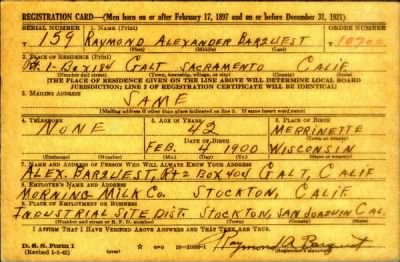 REGISTRATION CARD—(Men born on or after February 17, 1897 and on or before December 31, 1921)
SERIAL NUMBER 1. NAME (Print) ORDER NUMBER
T 159 RAYMOND ALEXANDER BARQUEST
(First) (Middle) (Last)
2. PLACE OF RESIDENCE (Print)
Rt. 1-Box 184 GALT SACRAMENTO CALIF
(Number and street) (Town, township, village, or city) (County) (State)
[THE PLACE OF RESIDENCE GIVEN ON THE LINE ABOVE WILL DETERMINE LOCAL BOARD
JURISDICTION; LINE 2 OF REGISTRATION CERTIFICATE WILL BE IDENTICAL]
3. MAILING ADDRESS
SAME
[Mailing address if other than place indicated on line 2. If same insert word same]
4. TELEPHONE 5. AGE IN YEARS 6. PLACE OF BIRTH
NONE 42 MERRINETTE
DATE OF BIRTH (Town or county)
FEB. 4 1900 WISCONSIN
(Mo.) (Day) (Yr.) (State or country)
7. NAME AND ADDRESS OF PERSON WHO WILL ALWAYS KNOW YOUR ADDRESS
ALEX. BARQUEST, Rt 2 BOX 404 GALT, CALIF
8. EMPLOYER'S NAME AND ADDRESS
MORNING MILK CO. STOCKTON, CALIF
9. PLACE OF EMPLOYMENT OR BUSINESS
INDUSTRIAL SITE DIST. STOCKTON, SAN JOAQUIN CAL.
(Number and street or R. F. D. number) (Town) (County) (State)
I AFFIRM THAT I HAVE VERIFIED ABOVE ANSWERS AND THAT THEY ARE TRUE.
D. S. S. Form 1
(Revised 1-1-42)
Raymond A Barquest
(Registrant's signature)